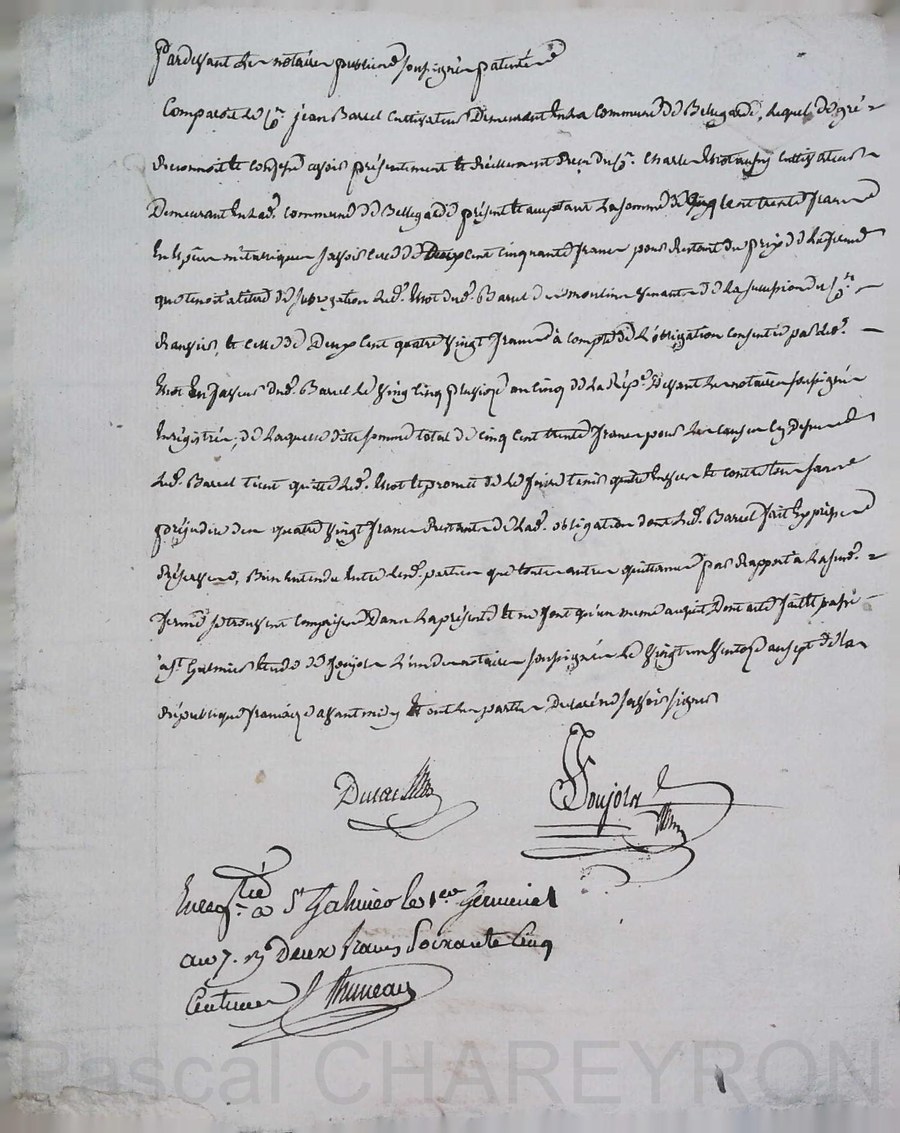 Pardevant les notaires publics soussignés patentés
Comparoit le Cn. jean Barcel Cultivateur Demeurant en la Commune de Bellegarde, lequel de gré
reconnoit et confesse avoir présentement et réellement reçu du Cn. Charle cultivateur
Demeurant en lad. commune de Bellegarde présent et acceptant la somme de Cinq cent trente francs
en numeriques savoir celle de Deux cent cinquante francs pour restant du prix de la ferme
que tenoit a titre de subrogation led. dud. Barcel des moulins venants de la succession du Cn.
François, et celle de Deux cent quatre vingt francs à compte de l'obligation consentie par led.
en faveur dud. Barcel le vingt cinq pluviose an cinq de la Rép. devant les notaires soussignés
enregistrée, de laquelle ditte somme total de cinq cent trente francs pour les causes cy dessus
led. Barcel tient quitte led. et promet de le faire tenir quitte envers et contre tous sans
préjudice des quatre vingt francs restants de lad. obligation dont led. Barcel fait expresse
réserve, Bien entendu entre lesd. parties que toutes autres quittances par rapport à lasusd.
ferme se trouvent comprises dans la présente et ne font qu'un meme acquit Dont acte fait et passé
a St. Galmier étude de Soujola l'un des notaires soussignés le vingt un ventose an sept de la
République française avant midy et ont les parties Declaré ne savoir signer
Dulac Soujola
Enregtré a St Galmier le 1er Germinal
an 7. Deux francs Soixante Cinq
Centimes Thuneau
Pascal CHAREYRON